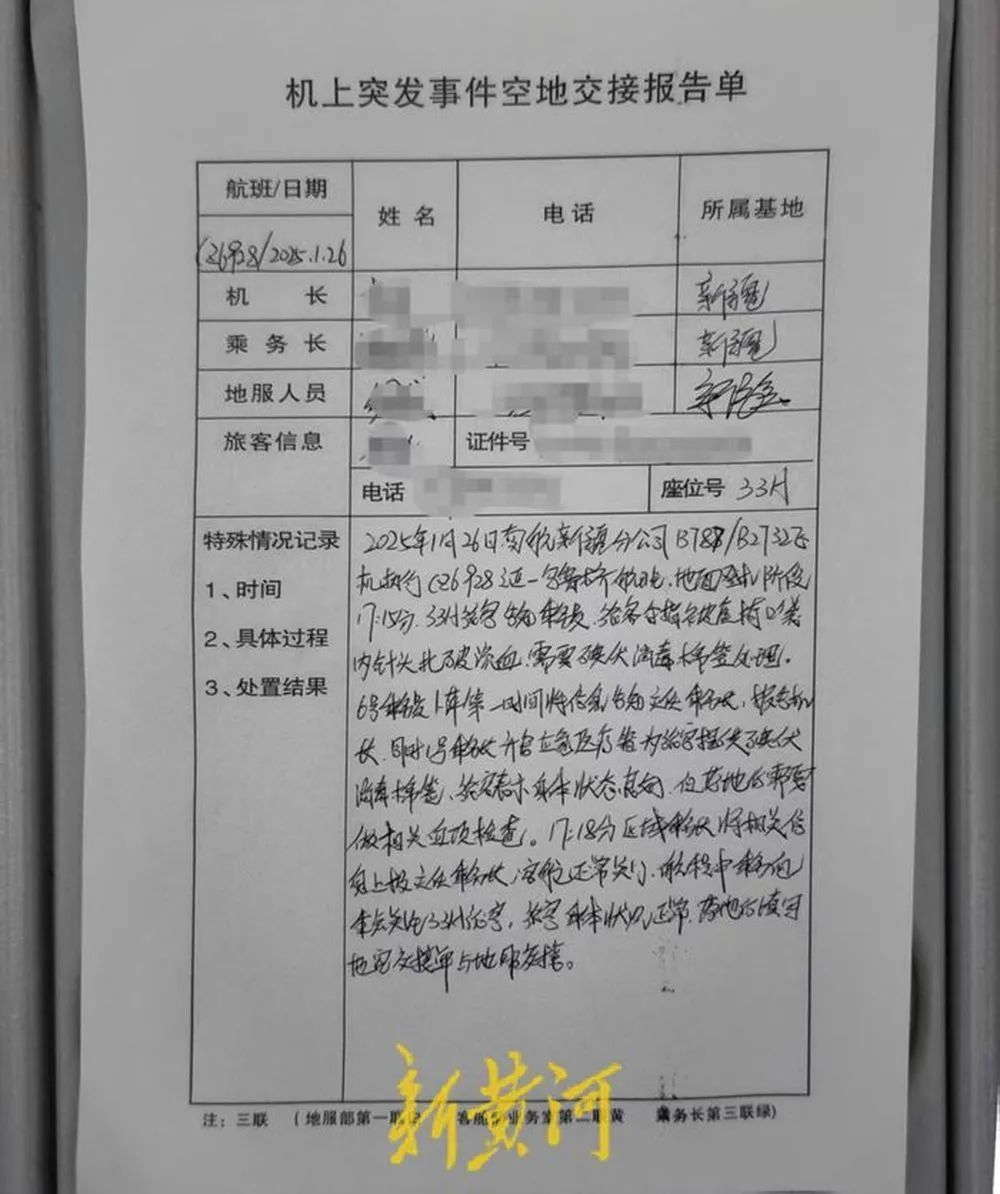 机上突发事件空地交接报告单
航班/日期
姓名
电话
所属基地
CZ6928/2025.1.26
机长
新疆
乘务长
新疆
地服人员
旅客信息
证件号
电话
座位号 33H
特殊情况记录
1、时间
2、具体过程
3、处置结果
2025年1月26日南航新疆分公司B787/B2732飞
机执行CZ6928 航班,地面登机阶段
17:15分,33H旅客告知乘务员,旅客手指被座椅口袋
内针头扎破流血,需要碘伏消毒棉签处理。
6号乘务员第一时间将信息告知主任乘务长,报告机
长,同时1号乘务长开启应急医疗箱为旅客提供碘伏
消毒棉签,旅客表示身体状态良好,但落地后需要
做相关血项检查。17:18分区域乘务长将相关信
息上报主任乘务长,客舱正常关门,航程中乘务组
关注33H旅客,旅客身体状况正常,落地后填写
地空交接单与地服交接。
注:三联 (地服部第一联 业务室第二联黄 乘务长第三联绿)
新黄河